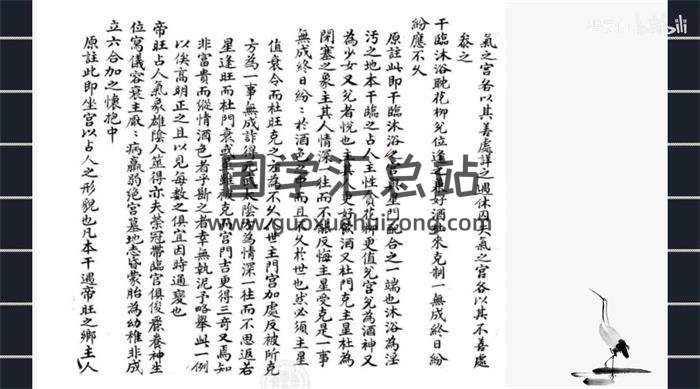 氣之宮各以其善處詳之遇休囚失氣之宮各以其不善處
叅之
干臨沐浴耽花柳兌位逢之更好酒杜來克制一無成終日紛
紛應不久
原註此即干臨沐浴之宮與星門配合之一端也沐浴為淫
污之地本干臨之占人主性質花柳更值兌宮兌為酒神又
為少女又兌者悅也主其人更好飲酒又杜門克主星杜為
閉塞之象主其人情深一往而不能反悔主星受克是一事
無成終日紛紛於酒色之中而且不久於世也然必須主星
值衰令而杜旺克之方為不久人世主門宮加處反被所克
方為一事無成詐得太陰方為情深一往而不思返若
星逢旺而杜門衰或雖微克而宮門吉更得三奇又焉知
非富貴而縱情酒色者乎斷之者幸無執泥予略舉此一例
以俟高明正之且以見每數之俱宜因時通變也
帝旺占人氣象雄陰人筮得亦夫榮冠帶臨官俱俊麗養神生
位寓儀容衰主厭厭病羸弱絕宮墓地態昏蒙胎為幼稚非成
立六合加之懷抱中
原註此即坐宮以占人之形貌也凡本干遇帝旺之鄉主人
国学汇总站
www.guoxuehuizong.com
bilibili